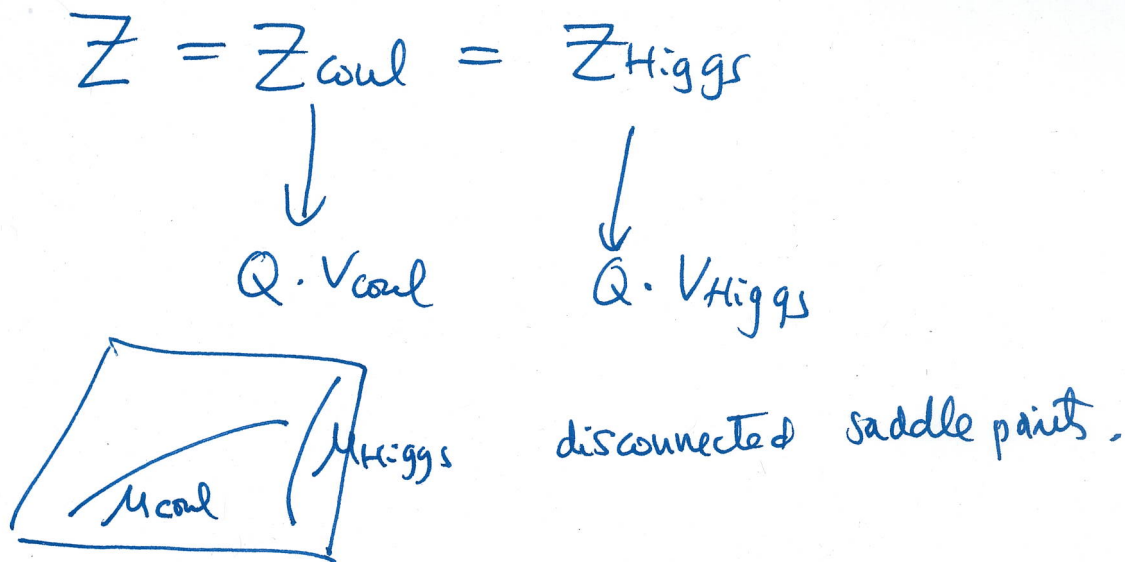 Z = Z_Coul = Z_Higgs
↓ ↓
Q · V_Coul Q · V_Higgs
M_Higgs disconnected saddle points.
M_Coul